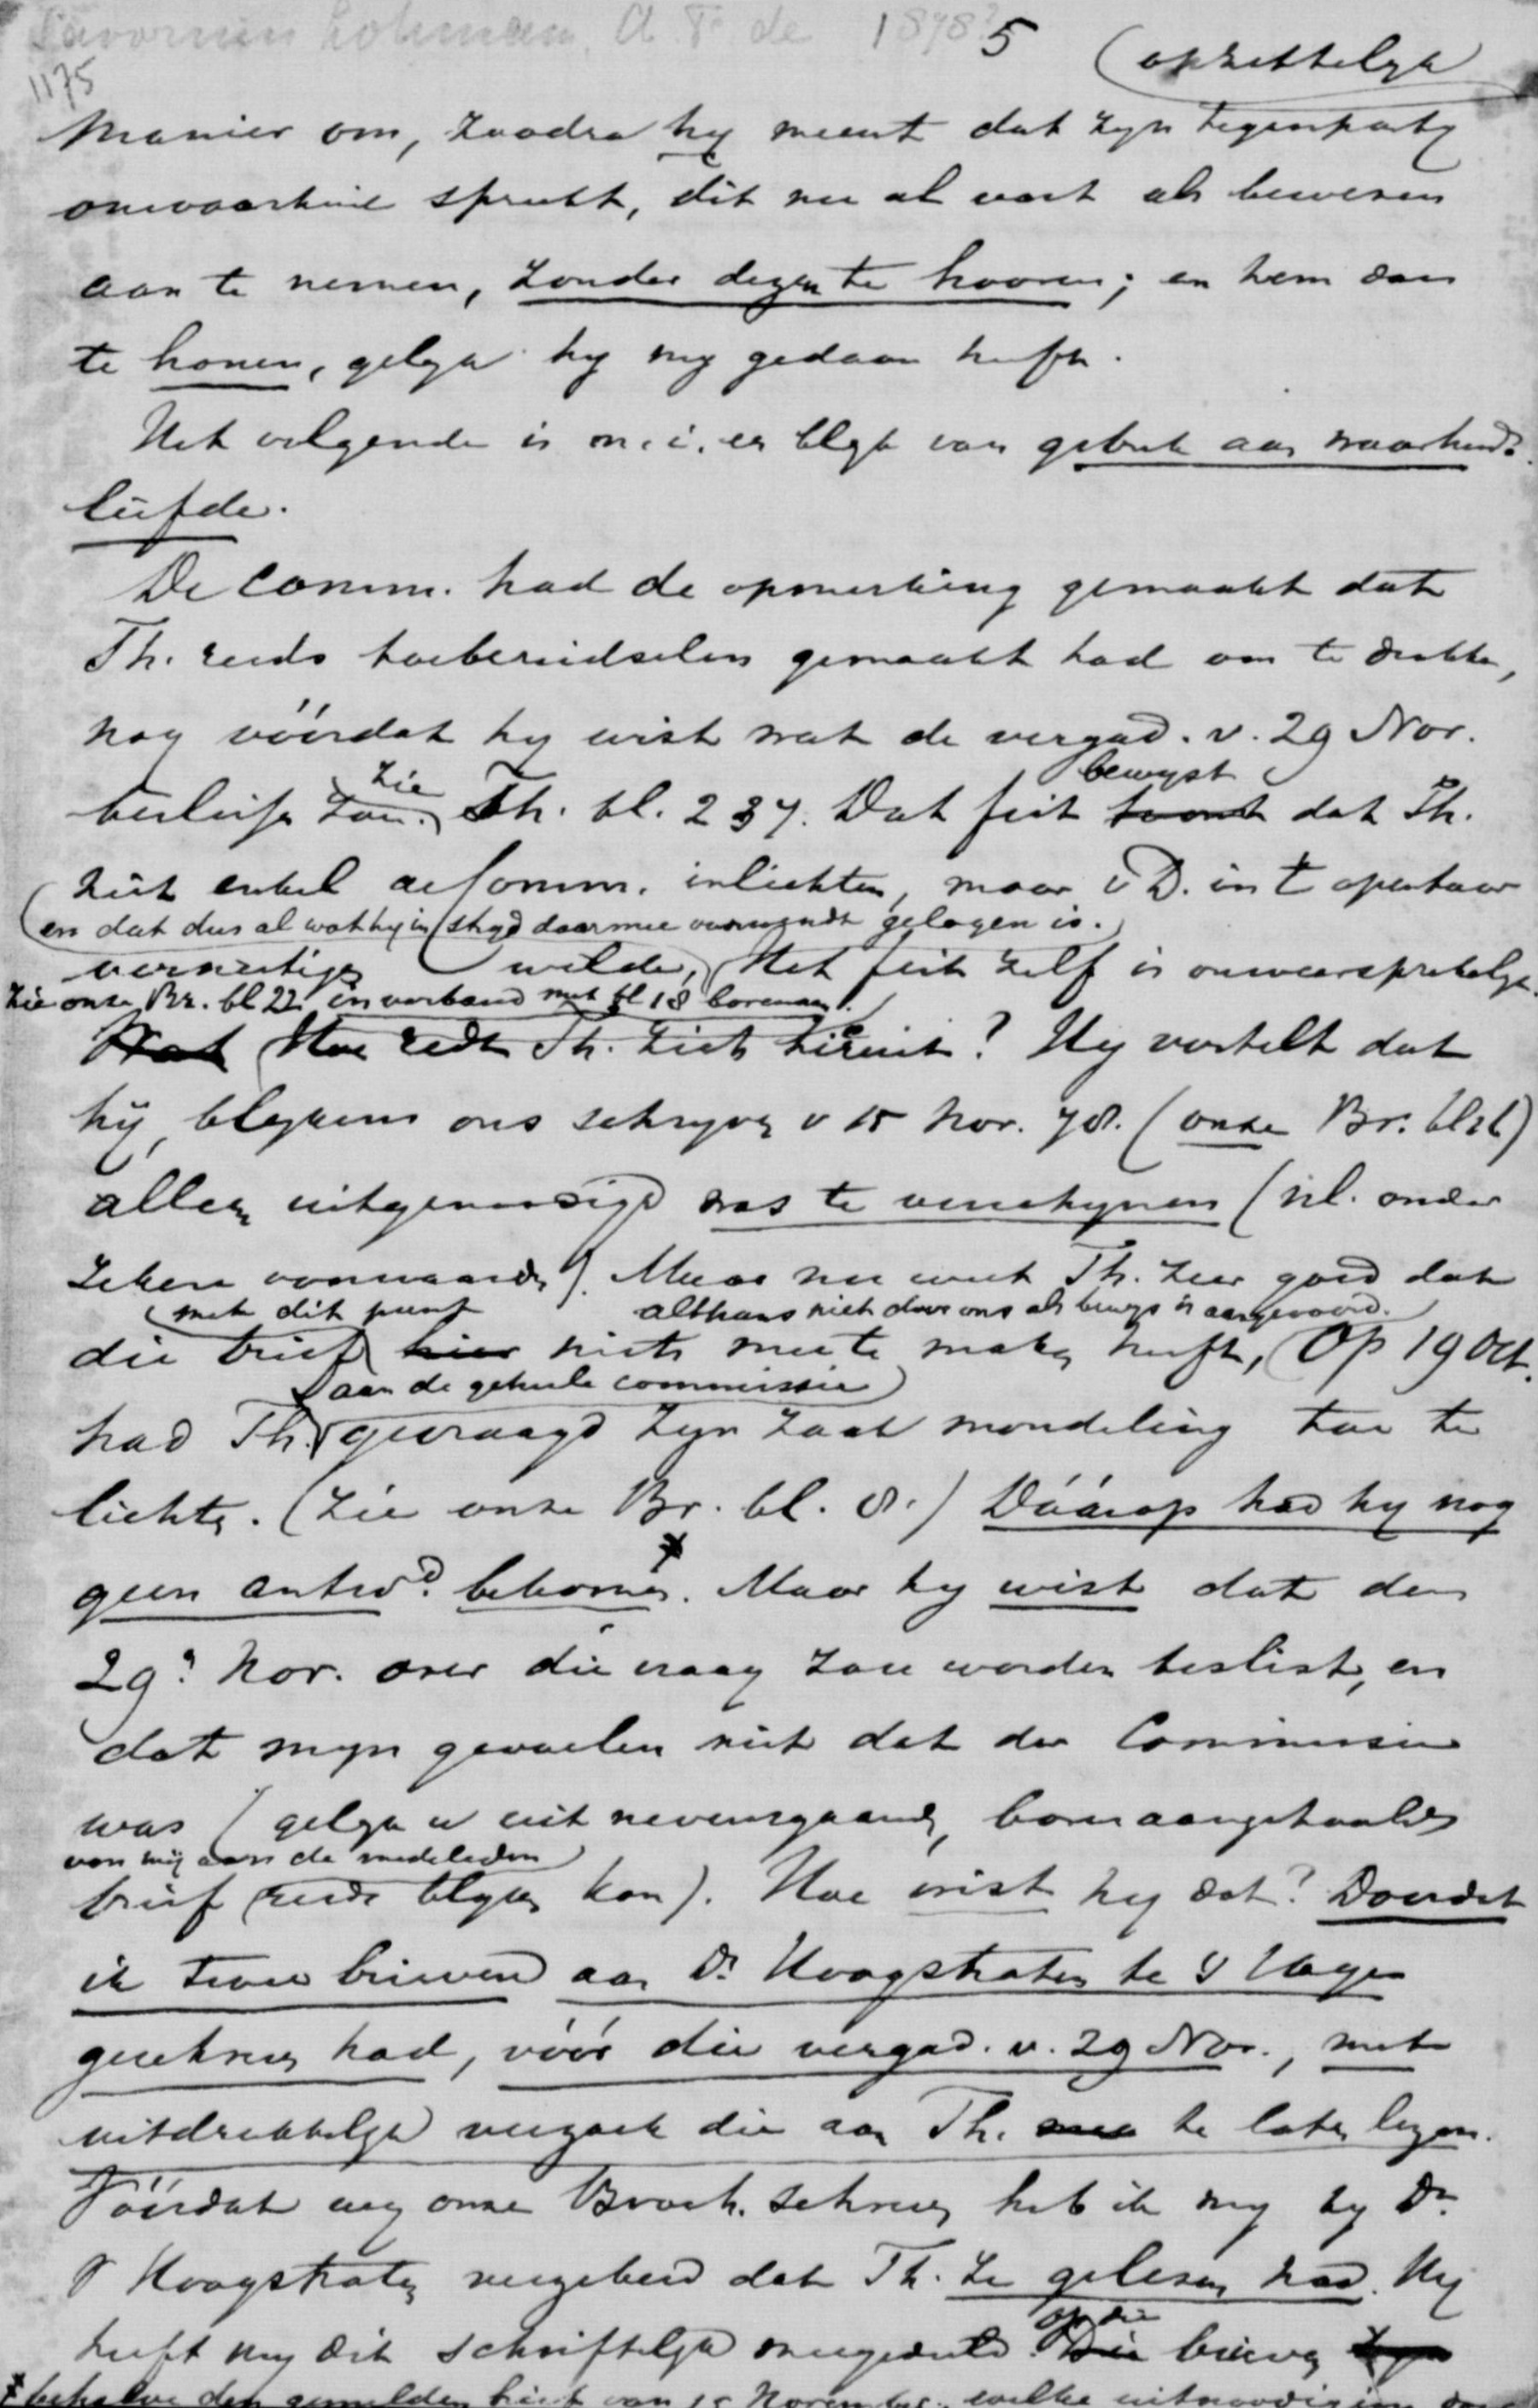 Savornin Lohman, A. F. de 1878? 5 (opzettelyk
1175
Manier om, zoodra hy meent dat zyn tegenparty
onwaarheid spreekt, dit nu al vast als bewezen
aan te nemen, zonder dezen te hooren; en hem dan
te honen, gelyk hy my gedaan heeft.
Het volgende is m.i. een blyk van gebrek aan waarheids-
liefde.
De Comm. had de opmerking gemaakt dat
Th. reeds toebereidselen gemaakt had om te drukken,
nog vóórdat hy wist wat de vergad. v. 29 Nov.
bewyst
beslissen zou. Zie Th. bl. 237. Dat feit toont dat Th.
niet enkel de Comm. inlichten, maar v D. in 't openbaar
(en dat dus al wat hy in stryd daarmee voorwendt gelogen is.)
vernietigen wilde. Het feit zelf is onweersprekelyk.
Zie onze Br. bl 22 in verband met bl 18 bovenaan.
Wat Hoe redt Th. zich hieruit? Hy vertelt dat
hij, blykens ons schryven v 15 Nov. 78. (onze Br. bl 21)
alleen uitgenoodigd was te verschynen (nl. onder
zekere voorwaarden). Maar nu weet Th. zeer goed dat
met dit punt althans niet door ons als bewys is aangevoerd.
die brief hier niets mee te maken heeft, Op 19 Oct.
aan de geheele commissie
had Th. gevraagd zyn zaak mondeling toe te
lichten. (Zie onze Br. bl. 8.) Dáárop had hy nog
geen antwd. bekomen. Maar hy wist dat den
29n Nov. over die vraag zou worden beslist, en
dat myn gevoelen niet dat der Commissie
was (gelyk u uit nevensgaanden, boven aangehaalden
van mij aan de medeleden
brief reeds blyken kan). Hoe wist hy dat? Doordat
ik twee brieven aan Dr Hoogstraten te 's Hage
geschreven had, vóór die vergad. v. 29 Nov., met
uitdrukkelyk verzoek die aan Th. mee te laten lezen.
Vóórdat wy onze Broch. schreven heb ik my by Dr
v Hoogstraten vergewist dat Th. ze gelezen had. Hy
op die
heeft my dit schriftelyk meegedeeld. Die brieven
* behalve den gemelden brief van 15 November, welke uitnoodiging